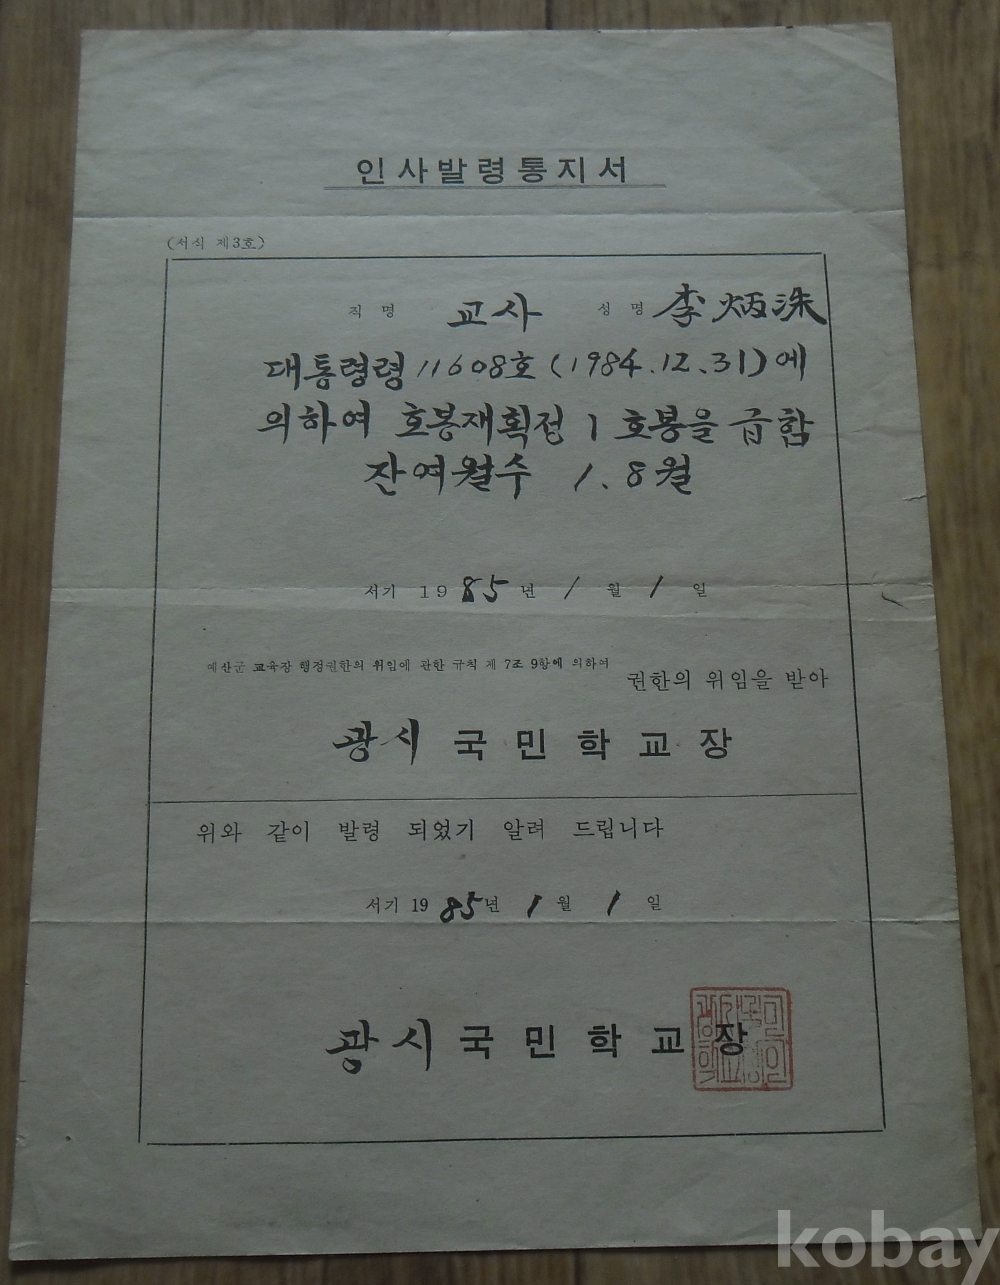 인사발령통지서
(서식 제3호)
직명 교사 성명 李炳洙
대통령령 11608호 (1984.12.31)에
의하여 호봉재획정 1 호봉을 급함
잔여월수 1.8월
서기 1985년 1월 1일
예산군 교육장 행정권한의 위임에 관한 규칙 제 7조 9항에 의하여
권한의 위임을 받아
광시 국민학교장
위와 같이 발령 되었기 알려 드립니다
서기 1985년 1월 1일
광시 국민학교장
kobay